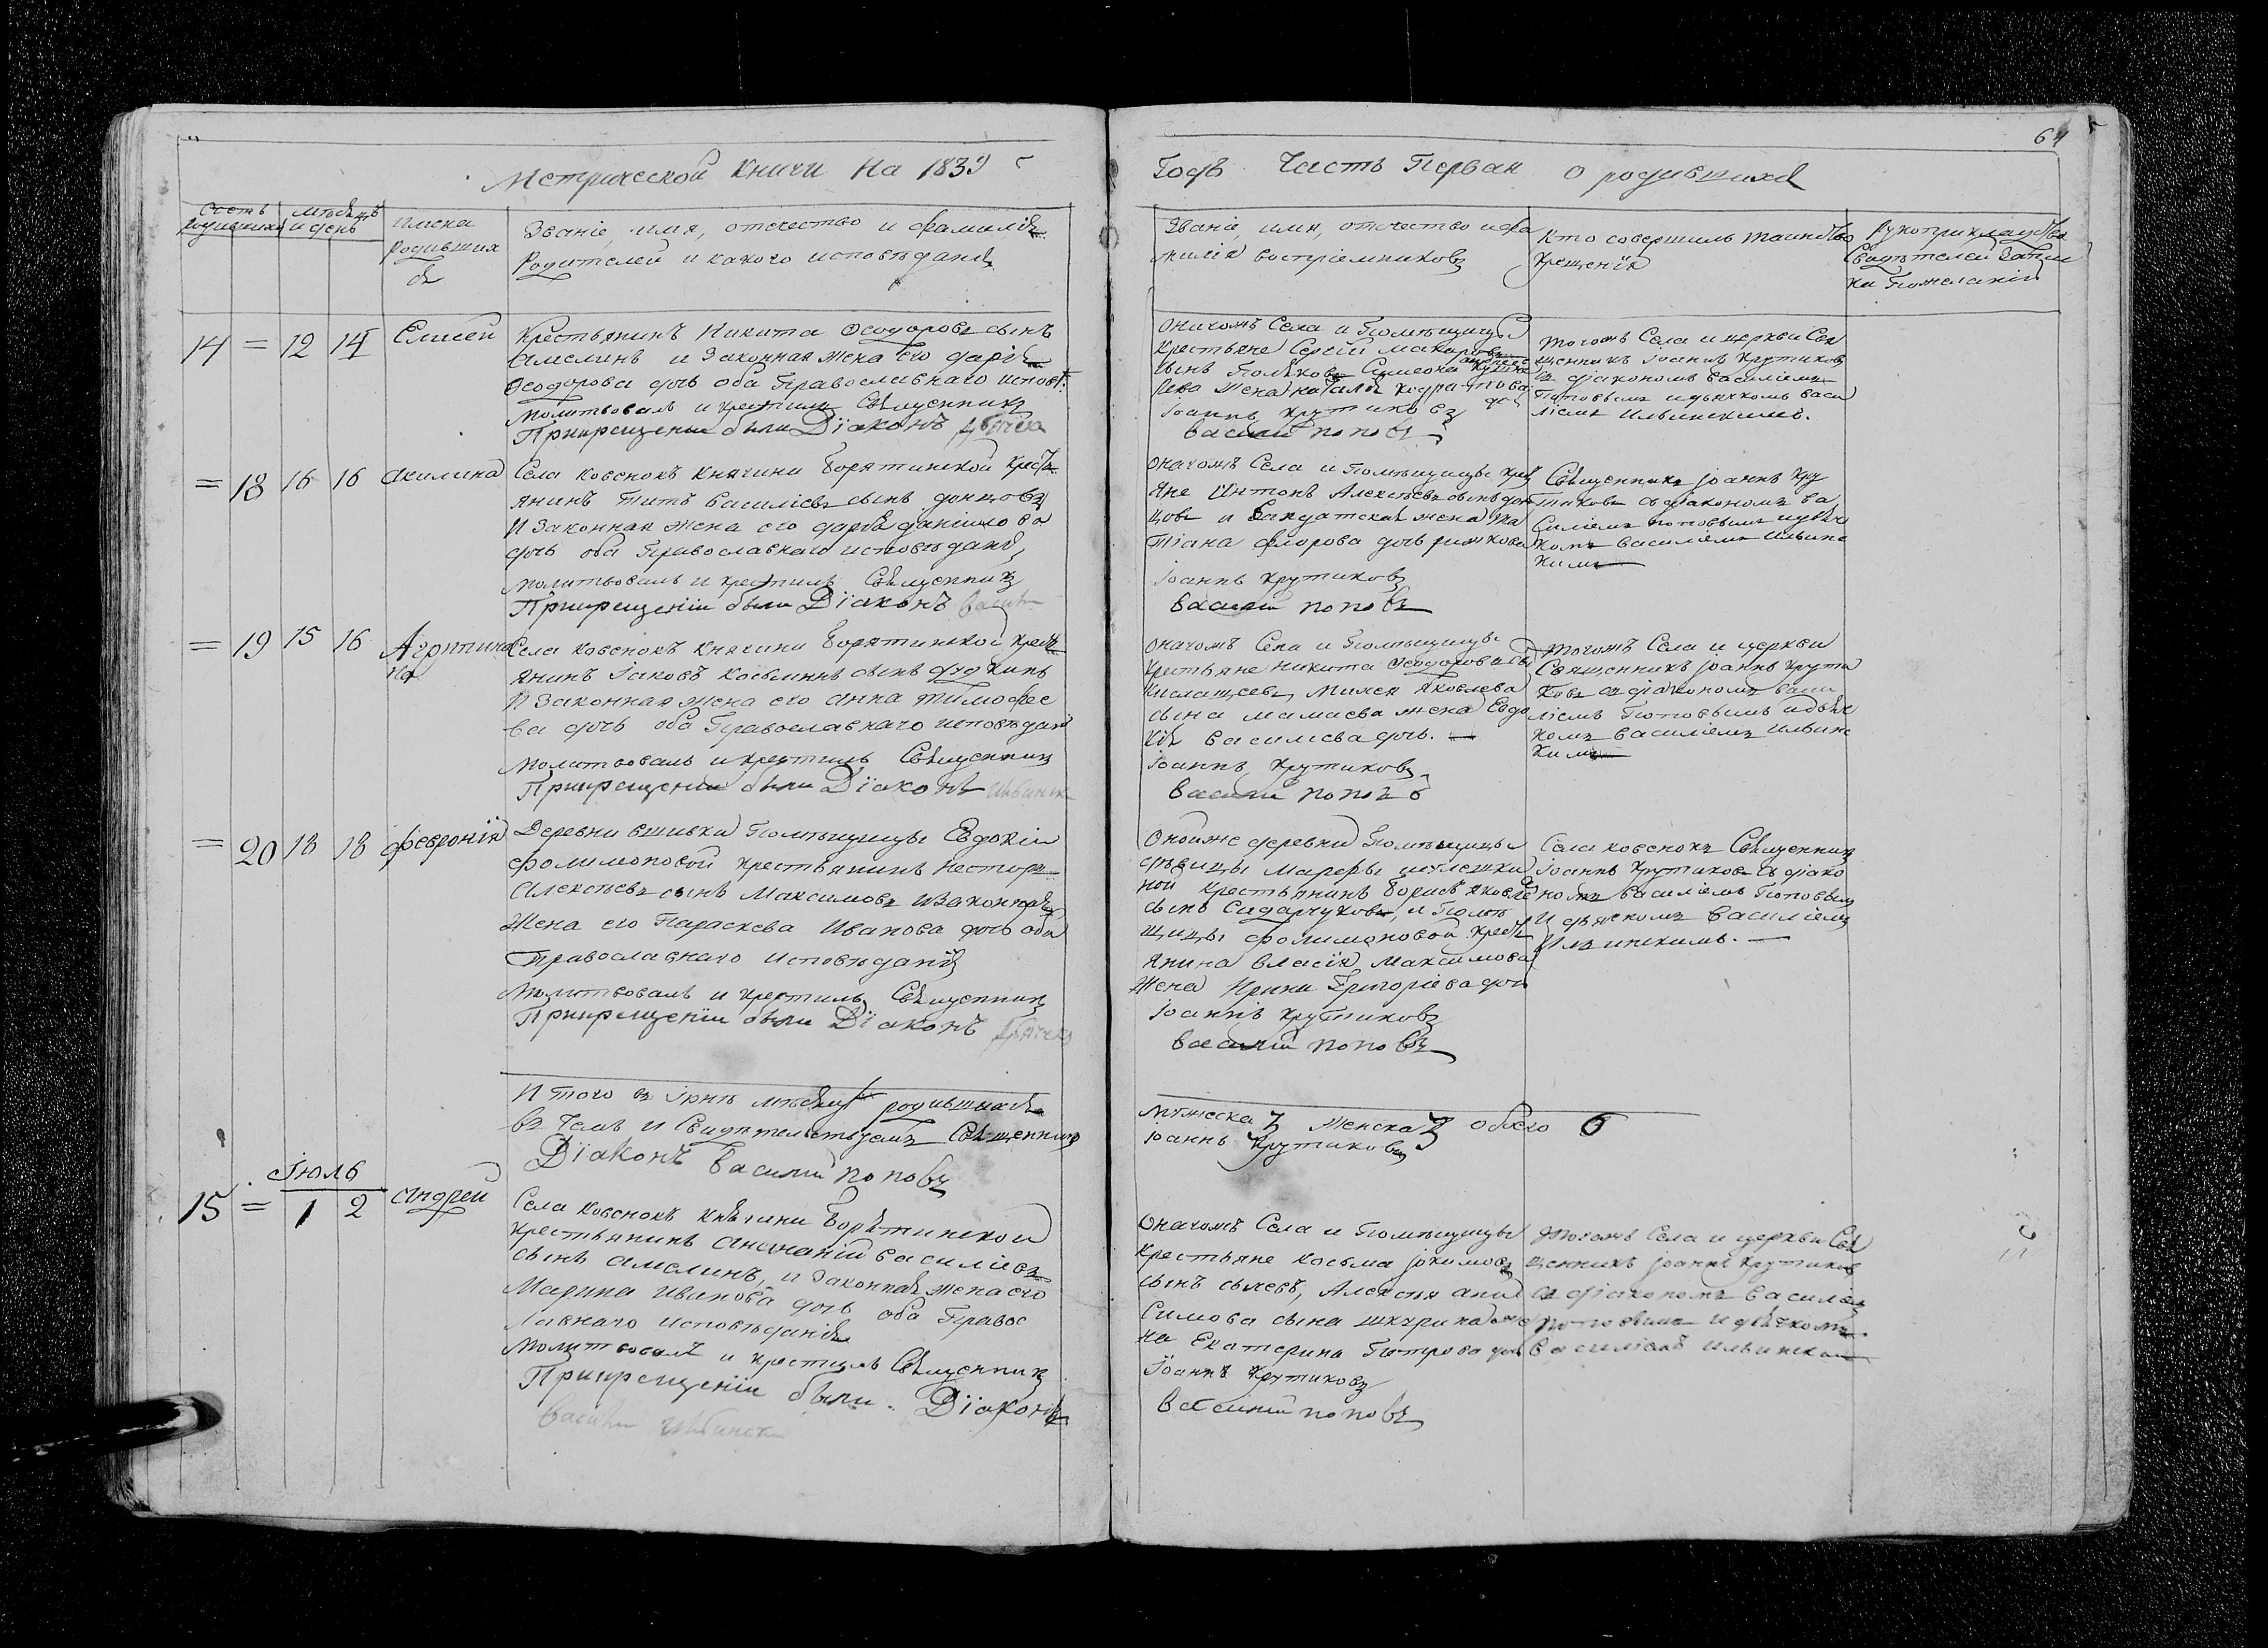 64
Метрической Книги на 1839
Годъ Часть Первая о родившихся
Счетъ родившихся
Мѣсяцъ и день
Имена родившихся
Званіе, имя, отчество и фамилія
Родителей и какого исповѣданія
Званіе, имя, отчество и фа
милія воспріемниковъ
Кто совершилъ таинство
Крещенія
Рукоприкладство
Свидѣтелей записи
по желанію
14 = 12 14 Елисей
Крестьянинъ Никита Ѳеодоровъ сынъ
Амелинъ и Законная жена его Дарія
Ѳеодорова дочь оба Православнаго исповѣ.
молитвовалъ и крестилъ Священникъ
При крещеніи были Діаконъ
Оногожъ Села и Помѣщицы
Крестьяне Сергій Макаровъ
сынъ Поляковъ Симеона
жена Наталія дочь
Іоаннъ Крутиковъ
Василій Поповъ
Тогожъ Села и церкви Свя
щенникъ Іоаннъ Крутиковъ
съ діакономъ Василіемъ
Поповымъ и дьячкомъ Васи
ліемъ Ильинскимъ.
= 18 16 16 Акилина
Села Ковенокъ Княгини Борятинской Крестья
янинъ Титъ Василіевъ сынъ Донцовъ
И Законная жена его Дарія Даніилова
дочь оба Православнаго исповѣданія,
молитвовалъ и крестилъ Священникъ
При крещеніи были Діаконъ
Оногожъ Села и Помѣщицы Крестья
яне Антонъ Алексѣевъ сынъ Дон
цовъ и Солдатская жена Та
тіана Флорова дочь Рижкова
Іоаннъ Крутиковъ
Василій Поповъ
Священникъ Іоаннъ Кру
тиковъ съ діакономъ Ва
силіемъ Поповымъ и дьяч
комъ Василіемъ Ильинс
кимъ
= 19 15 16 Агрипина
Села Ковенокъ Княгини Борятинской Кресть
янинъ Іаковъ Косьминъ сынъ Дудкинъ
И Законная жена его Анна Тимофее
ва дочь оба Православнаго исповѣданія
Молитвовалъ и крестилъ Священникъ
При крещеніи были Діаконъ
Оногожъ Села и Помѣщицы
Крестьяне Никита Ѳеодоровъ сы
Михея Яковлева
сына Мамаева жена Евдо
кія Василіева дочь.
Іоаннъ Крутиковъ
Василій Поповъ
Тогожъ Села и церкви
Священникъ Іоаннъ Крути
ковъ съ діакономъ Васи
ліемъ Поповымъ и дьяч
комъ Василіемъ Ильинс
кимъ
= 20 18 18 Февронія
Деревни Помѣщицы Евдокіи
Фолимоновой Крестьянинъ Несторъ
Алексѣевъ сынъ Максимовъ и Законная
Жена его Параскева Иванова дочь оба
Православнаго исповѣданія
Молитвовалъ и крестилъ Священникъ
При крещеніи были Діаконъ
Оной же деревни Помѣщицы
дѣвицы Марфы
ной Крестьянинъ Борисъ Яковле
сынъ Сидарчуковъ, и Помѣ
щицы Фолимоновой Кресть
янина Власія Максимова
Жена Ирина Григоріева дочь
Іоаннъ Крутиковъ
Василій Поповъ
Села Ковенокъ Священникъ
Іоаннъ Крутиковъ съ діако
номъ Василіемъ Поповымъ
И дьячкомъ Василіемъ
Ильинскимъ.
И того въ Іюнѣ мѣсяцѣ родившихся
Въ чемъ и Свидѣтельствуемъ Священникъ
Діаконъ Василій Поповъ
Мужеска 3 Женска 3 обоего 6
Іоаннъ Крутиковъ
Іюль
15 = 1 2 Андрей
Села Ковенокъ Княгини Борятинской
Крестьянинъ Ананій Василіевъ
сынъ Амелинъ, и Законная жена его
Марина Иванова дочь оба Правос
лавнаго исповѣданія
Молитвовалъ и крестилъ Священникъ
При крещеніи были. Діаконъ
Василій Ильински
Оногожъ Села и Помѣщицы
Крестьяне Косьма Іокимовъ
сынъ Сычевъ, Алексѣя Ани
симова сына Шкурина же
на Екатерина Петрова дочь
Іоаннъ Крутиковъ
Василій Поповъ
Тогожъ Села и церкви Свя
щенникъ Іоаннъ Крутиковъ
съ діакономъ Василіемъ
Поповымъ и дьячкомъ
Василіемъ Ильинским